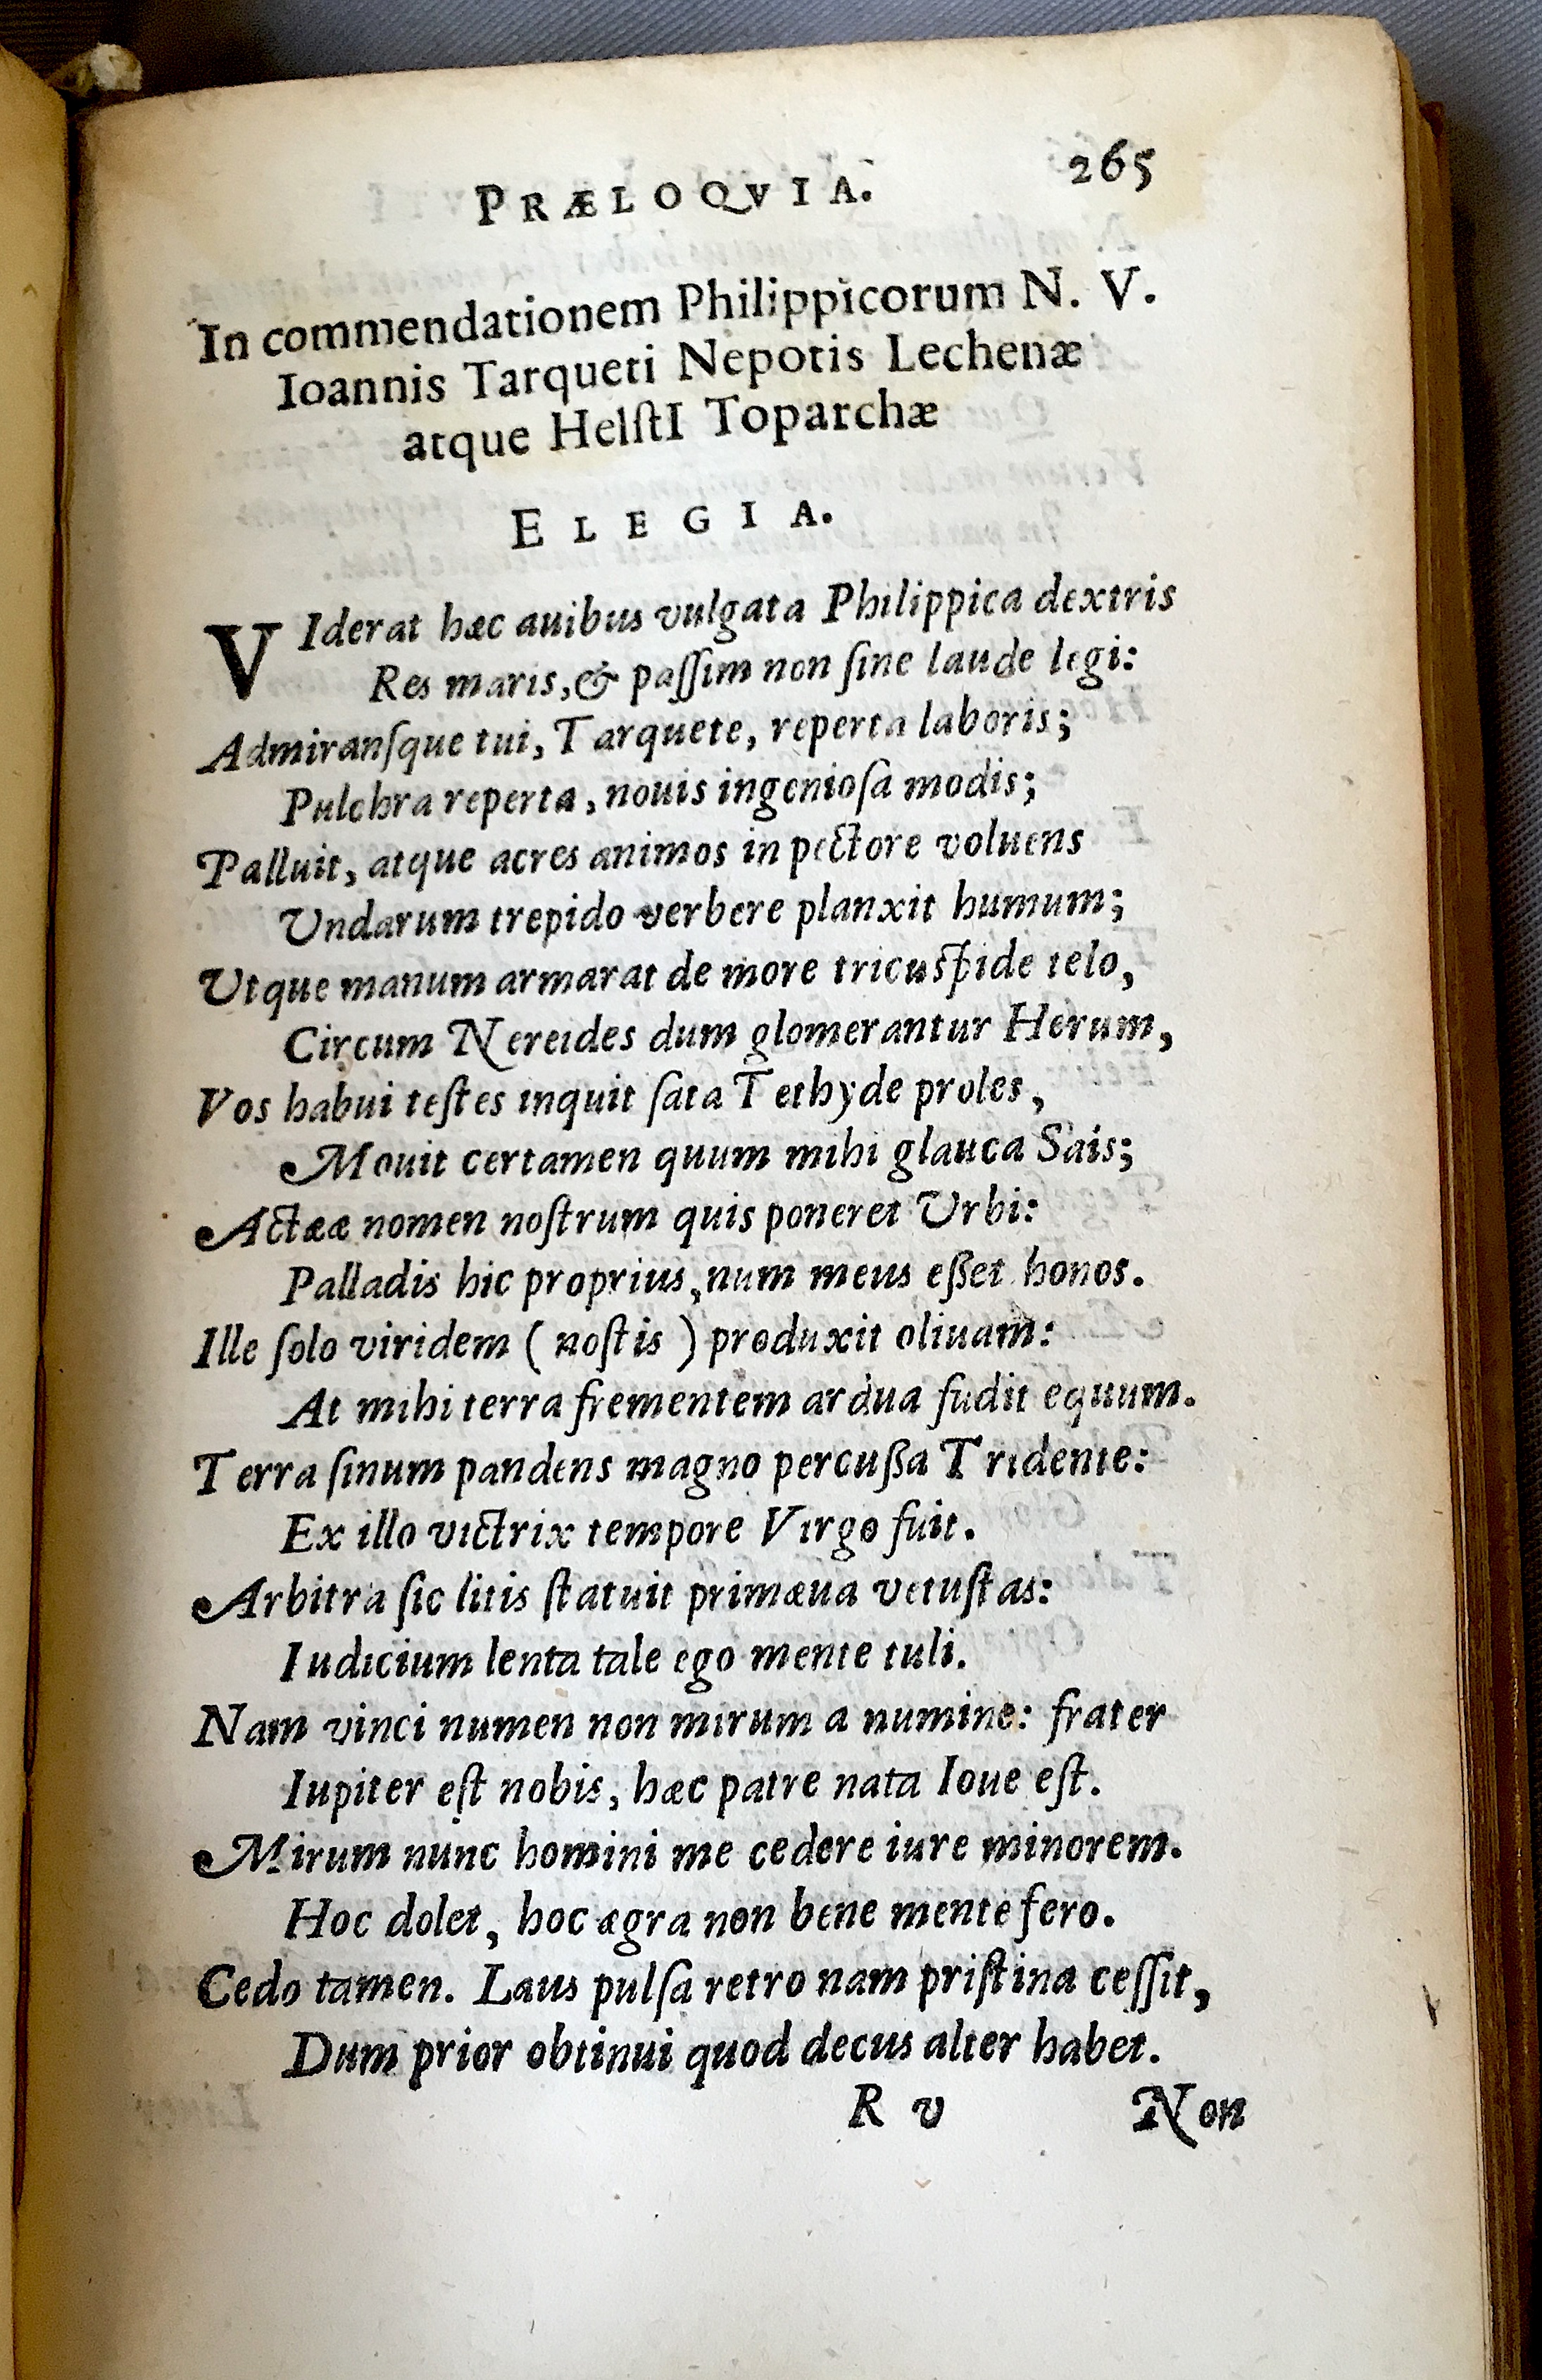 PRÆLOQVIA. 265
In commendationem Philippicorum N. V.
Ioannis Tarqueti Nepotis Lechenæ
atque HelſtI Toparchæ
ELEGIA.
VIderat hæc auibus vulgata Philippica dextris
Res maris, & paſſim non ſine laude legi:
Admiranſque tui, Tarquete, reperta laboris;
Pulchra reperta, nouis ingenioſa modis;
Palluit, atque acres animos in pectore voluens
Undarum trepido verbere planxit humum;
Utque manum armarat de more tricuspide telo,
Circum Nereides dum glomerantur Herum,
Vos habui teſtes inquit ſata Tethyde proles,
Mouit certamen quum mihi glauca Sais;
Actææ nomen noſtrum quis poneret Urbi:
Palladis hic proprius, num meus eßet honos.
Ille ſolo viridem ( noſtis ) produxit oliuam:
At mihi terra frementem ardua fudit equum.
Terra ſinum pandens magno percußa Tridente:
Ex illo victrix tempore Virgo fuit.
Arbitra ſic litis ſtatuit primæua vetuſtas:
Iudicium lenta tale ego mente tuli.
Nam vinci numen non mirum a numine: frater
Iupiter eſt nobis, hæc patre nata Ioue eſt.
Mirum nunc homini me cedere iure minorem.
Hoc dolet, hoc ægra non bene mente fero.
Cedo tamen. Laus pulſa retro nam priſtina ceſſit,
Dum prior obtinui quod decus alter habet.
R v Non